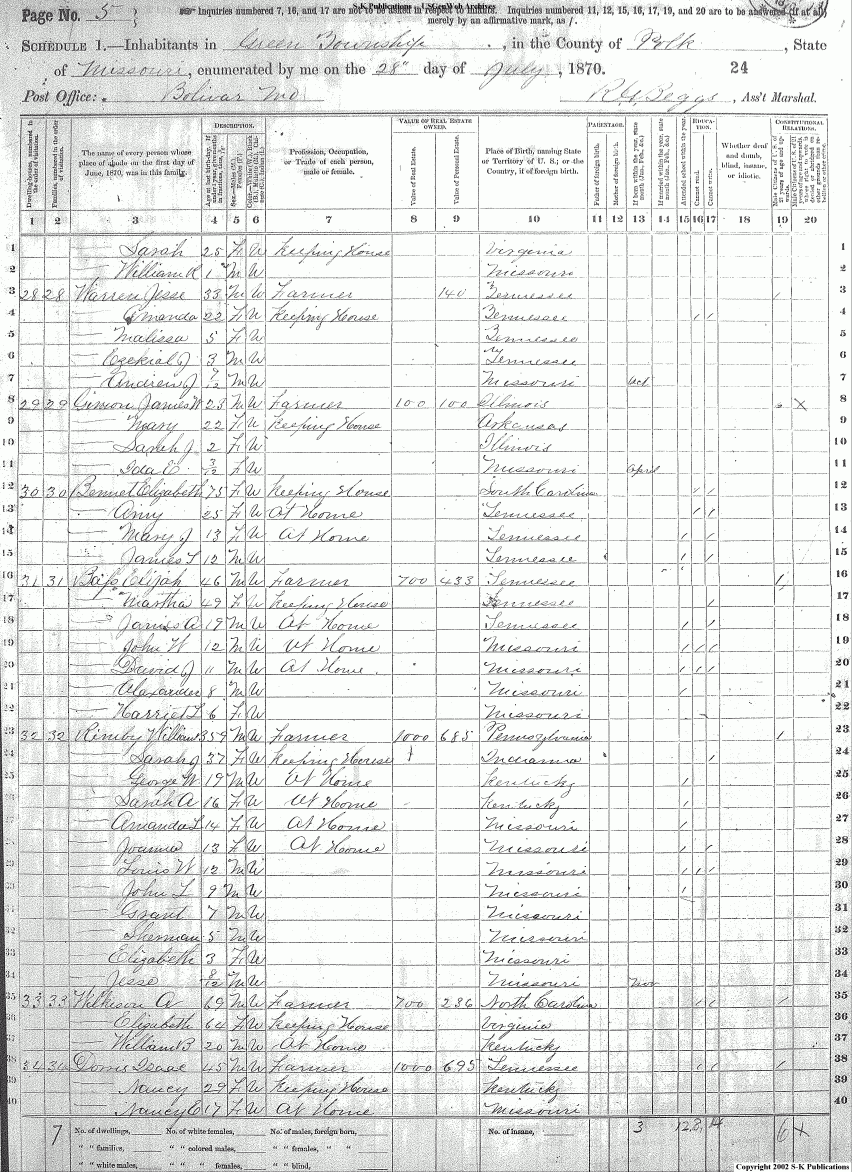 S-K Publications USGenWeb Archives
Page No. 5
Inquiries numbered 7, 16, and 17 are not to be asked in respect to infants. Inquiries numbered 11, 12, 15, 16, 17, 19, and 20 are to be answered (if at all) merely by an affirmative mark, as /.
SCHEDULE 1.—Inhabitants in Green Township, in the County of Polk, State
of Missouri, enumerated by me on the 28" day of July, 1870. 24
Post Office: Bolivar Mo R. G. Beggs, Ass't Marshal.
Dwelling-houses, numbered in the order of visitation.
Families, numbered in the order of visitation.
The name of every person whose place of abode on the first day of June, 1870, was in this family.
DESCRIPTION.
Profession, Occupation, or Trade of each person, male or female.
VALUE OF REAL ESTATE OWNED.
Value of Real Estate.
Value of Personal Estate.
Place of Birth, naming State or Territory of U. S.; or the Country, if of foreign birth.
PARENTAGE.
Father of foreign birth.
Mother of foreign birth.
Attended school within the year.
EDUCATION.
Cannot read.
Cannot write.
Whether deaf and dumb, blind, insane, or idiotic.
CONSTITUTIONAL RELATIONS.
1 2 3 4 5 6 7 8 9 10 11 12 13 14 15 16 17 18 19 20
1 Sarah 25 F W Keeping House Virginia 1
2 William R 1 M W Missouri 2
3 28 28 Warren Jesse 33 M W Farmer 140 Tennessee / 3
4 Amanda 22 F W Keeping House Tennessee / / 4
5 Malissa 5 F W Tennessee 5
6 Ezekial J 3 M W Tennessee 6
7 Andrew J 9/12 M W Missouri Oct 7
8 29 29 James W 23 M W Farmer 100 100 Illinois X 8
9 Mary 22 F W Keeping House Arkansas 9
10 Sarah J 2 F W Illinois 10
11 Ida E 3/12 F W Missouri April 11
12 30 30 Bennet Elizabeth 75 F W Keeping House South Carolina / / 12
13 Amy 25 F W At Home Tennessee / / 13
14 Mary J 13 F W At Home Tennessee / / 14
15 James T 12 M W Tennessee / / 15
16 31 31 Bass Elijah 46 M W Farmer 700 433 Tennessee / 16
17 Martha 49 F W Keeping House Tennessee / 17
18 James A 19 M W At Home Tennessee / / 18
19 John W 12 M W At Home Missouri / / / 19
20 David J 11 M W At Home Missouri / / / 20
21 Alexander 8 M W Missouri / 21
22 Harriet L 6 F W Missouri 22
23 32 32 Rimby William 59 M W Farmer 1000 685 Pennsylvania / 23
24 Sarah J 37 F W Keeping House Indiana / 24
25 George W 19 M W At Home Kentucky / 25
26 Sarah A 16 F W At Home Kentucky / 26
27 Amanda L 14 F W At Home Missouri / 27
28 Joanna 13 F W At Home Missouri / / 28
29 Louis W 12 M W Missouri / / / 29
30 John L 9 M W Missouri / 30
31 Grant 7 M W Missouri 31
32 Sherman 5 M W Missouri 32
33 Elizabeth 3 F W Missouri 33
34 Jesse 8/12 M W Missouri Nov 34
35 33 33 Wilkison A 69 M W Farmer 700 236 North Carolina / / / 35
36 Elizabeth 64 F W Keeping House Virginia 36
37 William B 20 M W At Home Kentucky 37
38 34 34 Isaac 45 M W Farmer 1000 695 Tennessee / / / 38
39 Nancy 29 F W Keeping House Kentucky 39
40 Nancy E 17 F W At Home Missouri 40
7 No. of dwellings, No. of white females, No. of males, foreign born, No. of insane, 3 12, 8, 14 6 X
" " families, " " colored males, " " females, " "
" " white males, " " " females, " " blind,
Copyright 2002 S-K Publications